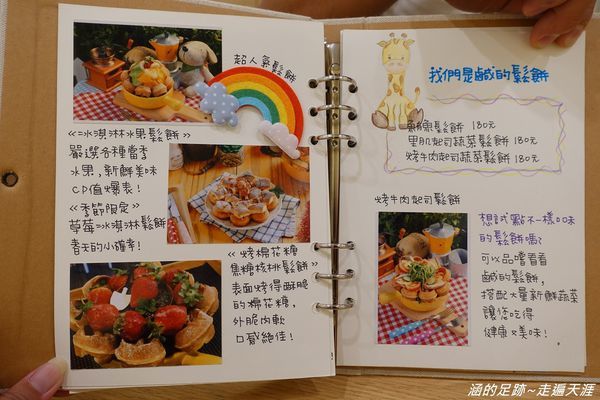 超人氣鬆餅
《冰淇淋水果鬆餅》
嚴選各種當季
水果,新鮮美味
CP值爆表!
《季節限定》
草莓冰淇淋鬆餅
春天的小確幸!
《烤棉花糖
焦糖核桃鬆餅》
表面烤得酥脆
的棉花糖,
外脆內軟
口感絕佳!
我們是鹹的鬆餅
鮪魚鬆餅 180元
里肌起司蔬菜鬆餅 180元
烤牛肉起司鬆餅 180元
烤牛肉起司鬆餅
想試點不一樣口味
的鬆餅嗎?
可以品嚐看看
鹹的鬆餅,
搭配大量新鮮蔬菜
讓您吃得
健康又美味!
涵的足跡~走遍天涯